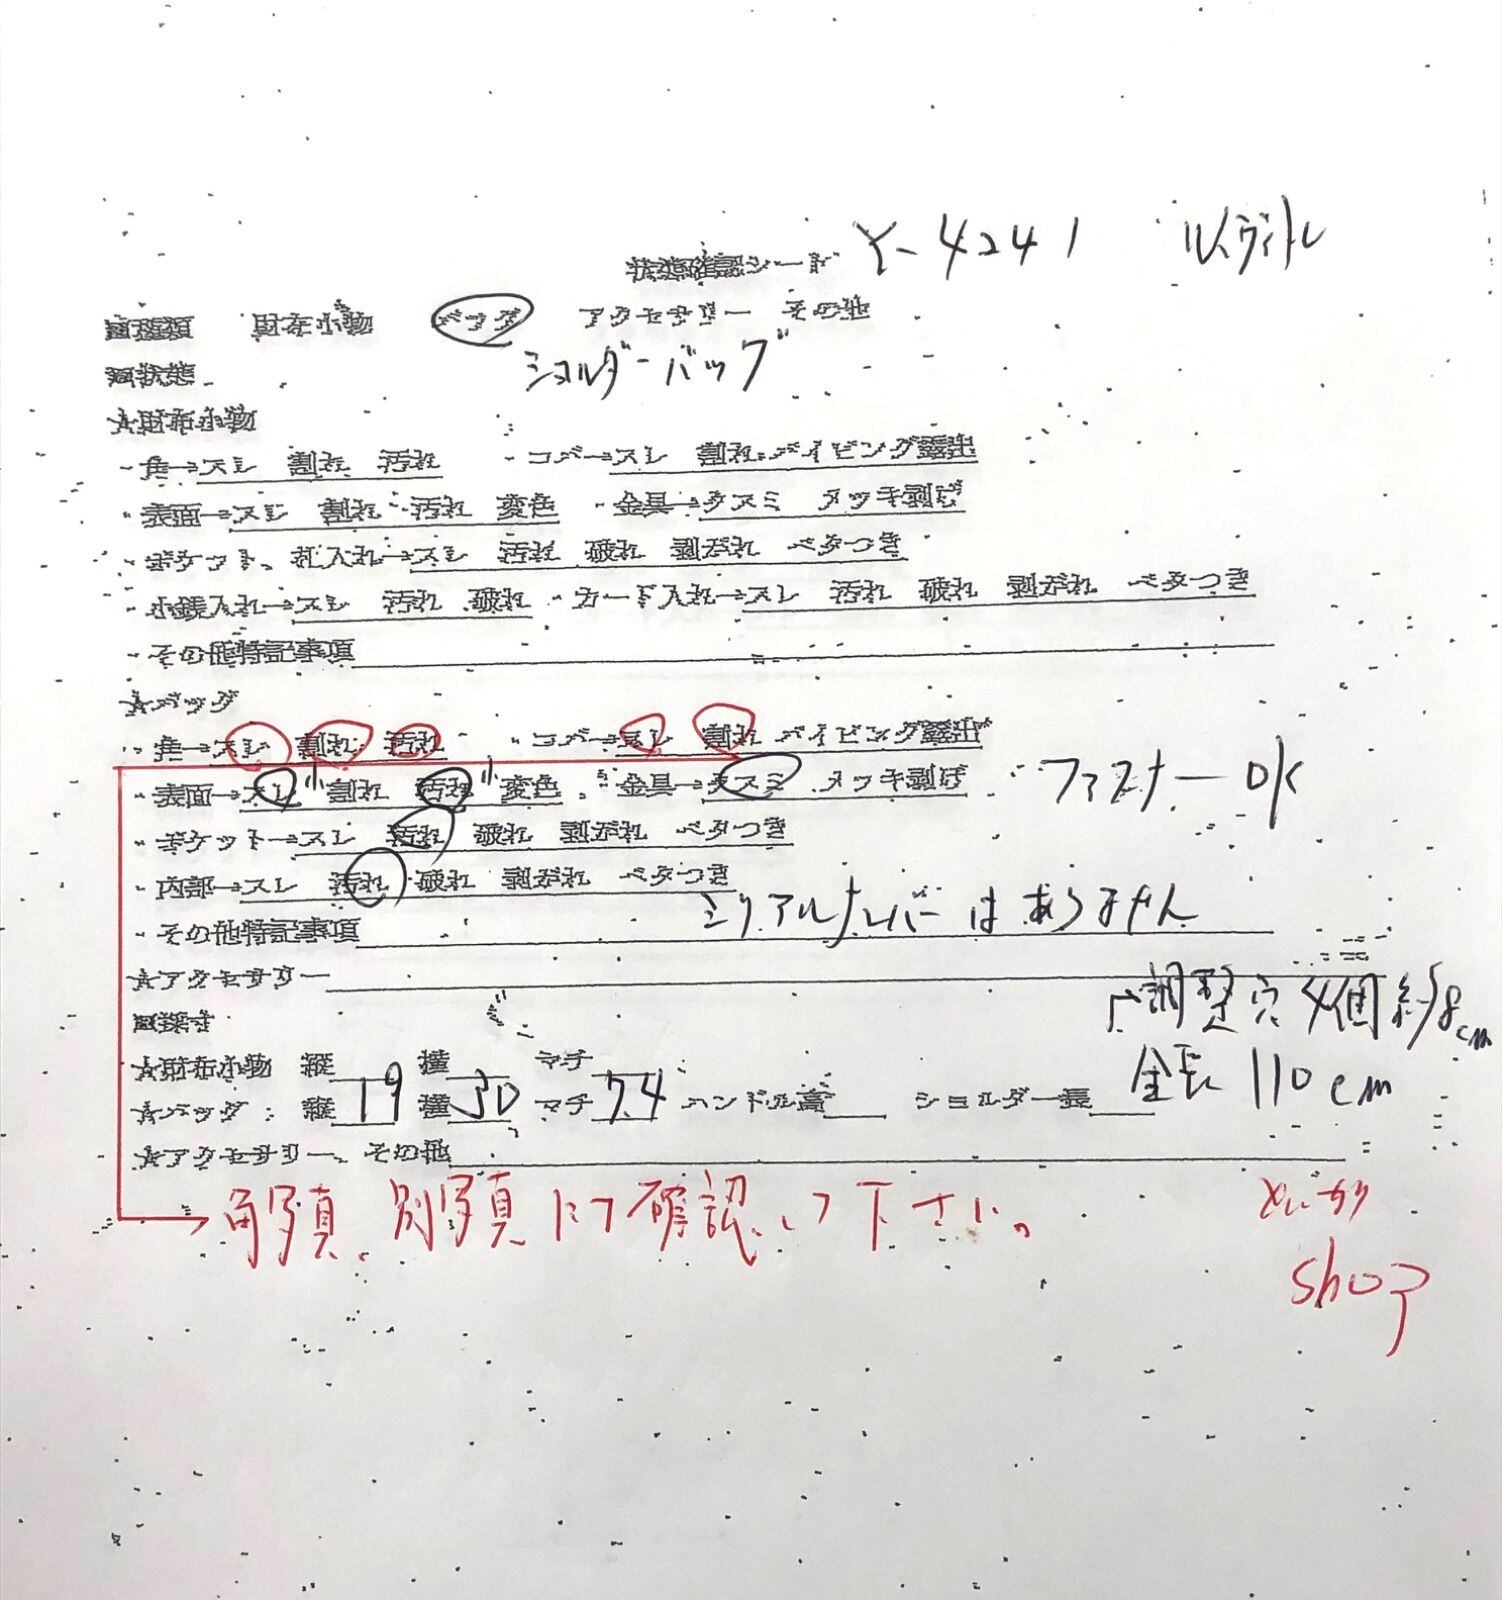 状態確認シート Y-4241 ルイヴィトン
□種類 財布小物 バッグ アクセサリー その他
□状態 ショルダーバッグ
☆財布小物
・角→スレ 割れ 汚れ ・コバ→スレ 割れ パイピング露出
・表面→スレ 割れ 汚れ 変色 ・金具→クスミ メッキ剥げ
・ポケット、札入れ→スレ 汚れ 破れ 剥がれ ベタつき
・小銭入れ→スレ 汚れ 破れ ・カード入れ→スレ 汚れ 破れ 剥がれ ベタつき
・その他特記事項
☆バッグ
・角→スレ 割れ 汚れ ・コバ→スレ 割れ パイピング露出
・表面→スレ 小 割れ 汚れ 小 変色 ・金具→クスミ メッキ剥げ ファスナーOK
・ポケット→スレ 汚れ 破れ 剥がれ ベタつき
・内部→スレ 汚れ 破れ 剥がれ ベタつき
・その他特記事項 シリアルナンバーはありません
☆アクセサリー
□採寸 調整穴 4個 約8cm
☆財布小物 縦 横 マチ
☆バッグ:縦 19 横 30 マチ 7.4 ハンドル高 ショルダー長 全長 110cm
☆アクセサリー、その他
→角写真、別写真にて確認して下さい。
shop